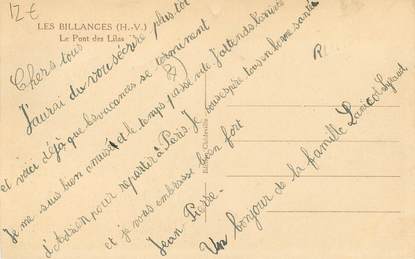 12 €
LES BILLANGES (H.-V.)
Le Pont des Lilas
Chers tous
J'aurai du vous écrire plus tôt
et voici déjà que les vacances se terminent
Je me suis bien amusé et le temps passe vite J'attends
d'Adrien pour repartir à Paris Je vous espère tous en bonne santé
et je vous embrasse bien fort
Jean-Pierre-
Un bonjour de la famille